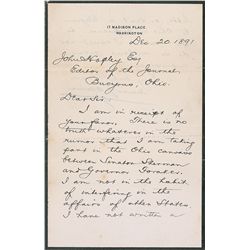 17 MADISON PLACE
WASHINGTON
Dec. 20 1891
John Hopley Esq
Editor of the Journal,
Bucyrus, Ohio.
Dear Sir:
I am in receipt of
your favor. There is no
truth whatever in the
rumor that I am taking
part in the Ohio canvass
between Senator Sherman
and Governor Foraker.
I am not in the habit
of interfering in the
affairs of other States
I have not written a